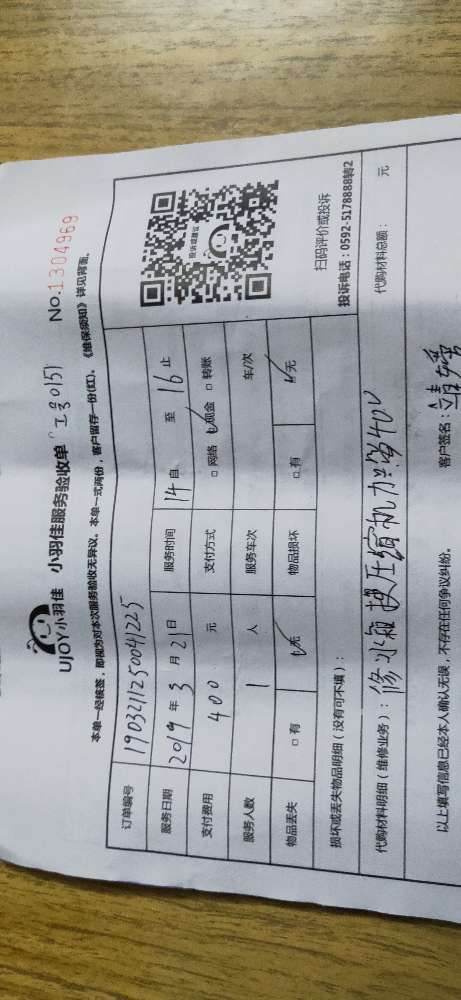 UJOY小羽佳 小羽佳服务验收单 工号0151 No.1304969
本单一经核签，即视为对本次服务验收无异议。本单一式两份，客户留存一份(红)。《维保须知》详见背面。
订单编号 1903211250041225
投诉或建议
扫码评价或投诉
投诉电话：0592-5178888转2
服务日期 2019 年 3 月 21 日 服务时间 14 自 至 16 止
支付费用 400 元 支付方式 □ 网络 ☑现金 □ 转账
服务人数 1 人 服务车次 车/次
物品丢失 □ 有 ☑无 物品损坏 □ 有 ☑无
损坏或丢失物品明细（没有可不填）：
代购材料明细（维修业务）：修水箱 压缩机加 400 代购材料总额： 元
以上填写信息已经本人确认无误，不存在任何争议纠纷。 客户签名：